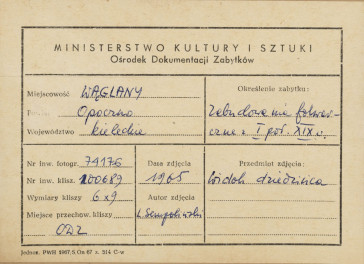 MINISTERSTWO KULTURY I SZTUKI
Ośrodek Dokumentacji Zabytków
Miejscowość WĄGLANY
Powiat Opoczno
Województwo kieleckie
Określenie zabytku:
Zabudowania folwar-
czne z I poł. XIX w.
Nr inw. fotogr. 74176
Nr inw. klisz. 200689
Wymiary kliszy 6x9
Miejsce przechow. kliszy
ODZ
Data zdjęcia
1965
Autor zdjęcia
Przedmiot zdjęcia:
Widok dziedzińca